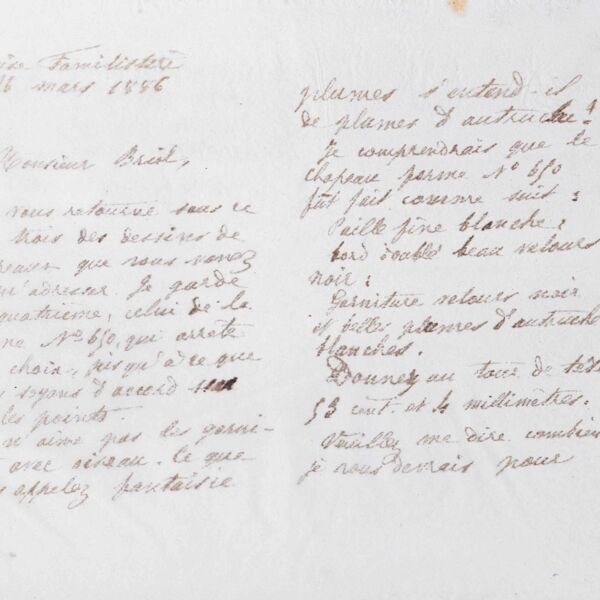 Familistère
mars 1886
Monsieur Briol,
vous retourne sous ce
trois des dessins de
que vous venez
adresser. Je garde
quatrième, celui de la
No 650, qui arrête
choix, jusqu'à ce que
soyons d'accord sur
les points.
n'aime pas les garni-
avec oiseau. Ce que
appelez fantaisie
plumes s'entend-il
de plumes d'autruche?
Je comprendrais que le
chapeau forme No 650
fût fait comme suit:
Paille fine blanche;
bord doublé beau velours
noir;
Garniture velours noir
et belles plumes d'autruche
blanches.
Donnez au tour de tête
53 cent. et 4 millimètres.
Veuillez me dire combien
je vous devrais pour